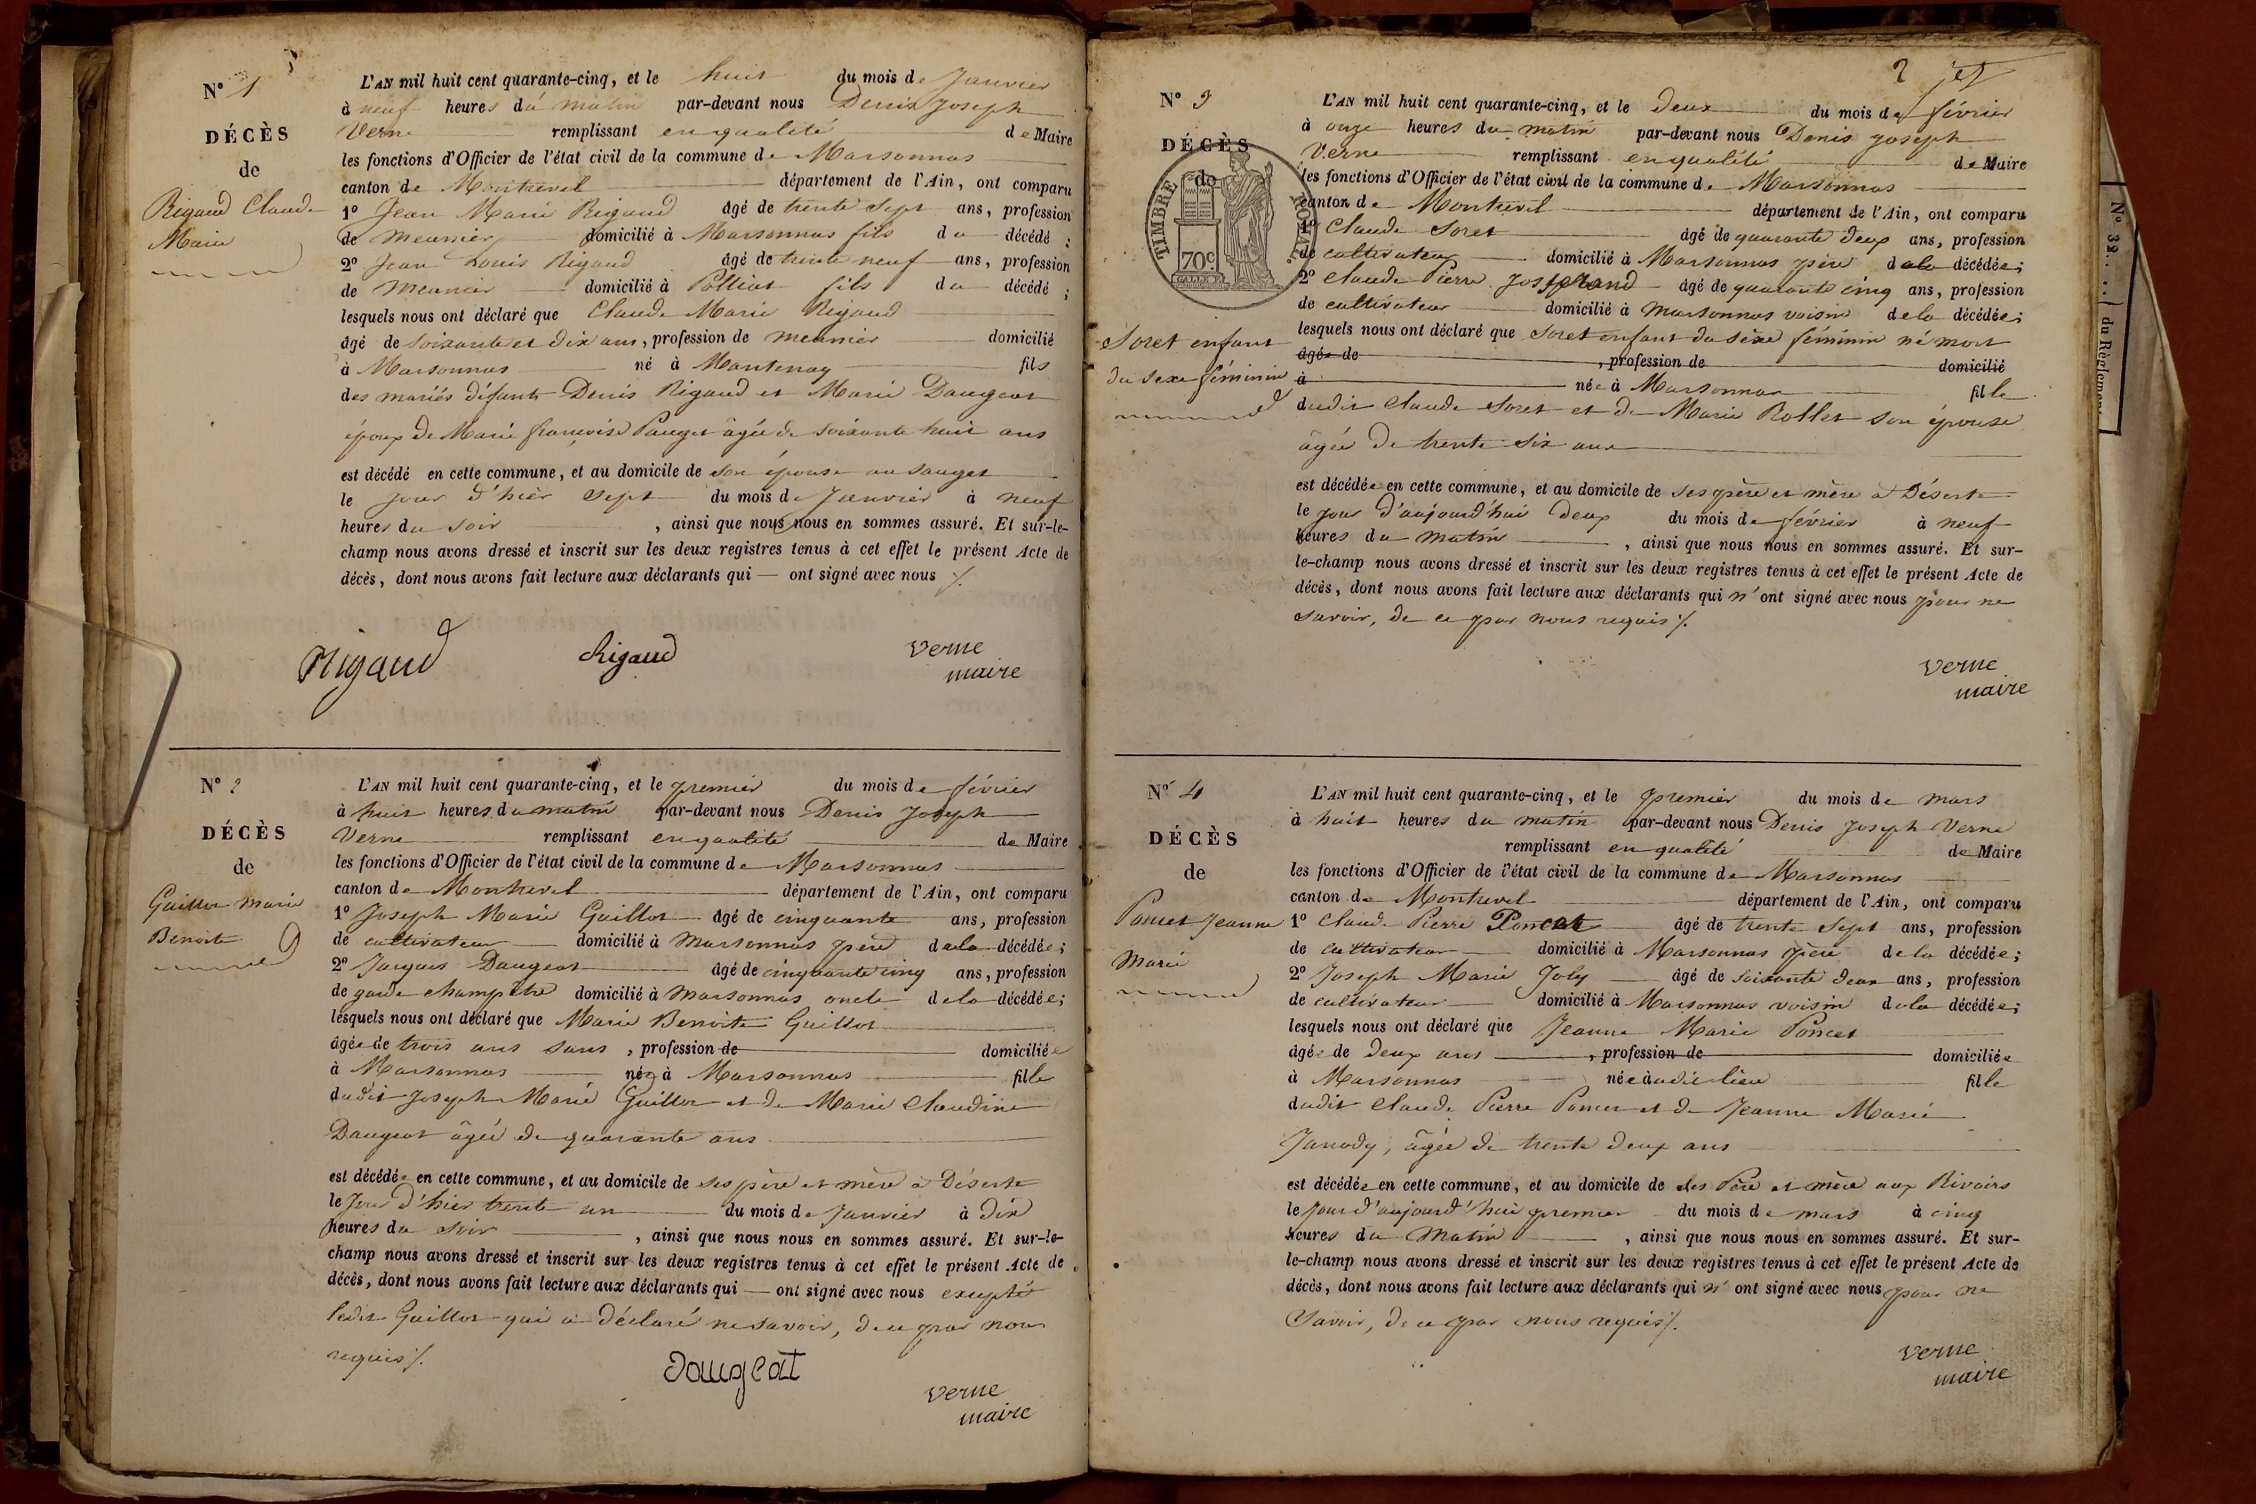 N° 1
DÉCÈS
de
Rigaud Claude
Marie
L'AN mil huit cent quarante-cinq, et le huit du mois de Janvier
à neuf heures du matin par-devant nous Denis Joseph
Verne remplissant en qualité de Maire
les fonctions d'Officier de l'état civil de la commune de Marsonnas
canton de Montrevel département de l'Ain, ont comparu
1° Jean Marie Rigaud âgé de trente sept ans, profession
de meunier domicilié à Marsonnas fils du décédé ;
2° Jean Louis Rigaud âgé de trente neuf ans, profession
de meunier domicilié à Polliat fils du décédé ;
lesquels nous ont déclaré que Claude Marie Rigaud
âgé de soixante et dix ans, profession de meunier domicilié
à Marsonnas né à Mantenay fils
des mariés défunts Denis Rigaud et Marie Daugeat
époux de Marie françoise Pauget âgée de soixante huit ans
est décédé en cette commune, et au domicile de son épouse au sauget
le jour d'hier sept du mois de Janvier à neuf
heures du soir , ainsi que nous nous en sommes assuré. Et sur-le-
champ nous avons dressé et inscrit sur les deux registres tenus à cet effet le présent Acte de
décès, dont nous avons fait lecture aux déclarants qui — ont signé avec nous ./.
Rigaud Rigaud Verne
maire
N° 2
DÉCÈS
de
Guillot Marie
Benoite
L'AN mil huit cent quarante-cinq, et le premier du mois de février
à huit heures du matin par-devant nous Denis Joseph
Verne remplissant en qualité de Maire
les fonctions d'Officier de l'état civil de la commune de Marsonnas
canton de Montrevel département de l'Ain, ont comparu
1° Joseph Marie Guillot âgé de cinquante ans, profession
de cultivateur domicilié à Marsonnas père de la décédée ;
2° Jacques Daugeat âgé de cinquante cinq ans, profession
de garde champêtre domicilié à Marsonnas oncle de la décédée ;
lesquels nous ont déclaré que Marie Benoite Guillot
âgée de trois ans sans , profession de domiciliée
à Marsonnas née à Marsonnas fille
dudit Joseph Marie Guillot et de Marie Claudine
Daugeat âgée de quarante ans
est décédée en cette commune, et au domicile de ses père et mère à Déserte
le Jour d'hier trente un du mois de Janvier à dix
heures du soir , ainsi que nous nous en sommes assuré. Et sur-le-
champ nous avons dressé et inscrit sur les deux registres tenus à cet effet le présent Acte de
décès, dont nous avons fait lecture aux déclarants qui — ont signé avec nous excepté
ledit Guillot qui a déclaré ne savoir, de ce par nous
requis ./.
Daugeat
Verne
maire
2
N° 3
DÉCÈS
de
TIMBRE ROYAL
70c.
Soret enfant
du sexe féminin
L'AN mil huit cent quarante-cinq, et le deux du mois de février
à onze heures du matin par-devant nous Denis Joseph
Verne remplissant en qualité de Maire
les fonctions d'Officier de l'état civil de la commune de Marsonnas
canton de Montrevel département de l'Ain, ont comparu
1° Claude Soret âgé de quarante deux ans, profession
de cultivateur domicilié à Marsonnas père de la décédée ;
2° Claude Pierre Josserand âgé de quarante cinq ans, profession
de cultivateur domicilié à Marsonnas voisin de la décédée ;
lesquels nous ont déclaré que Soret enfant du sèxe féminin né mort
âgée de , profession de domicilié
à née à Marsonnas fille
dudit Claude Soret et de Marie Rollet son épouse
âgée de trente six ans
est décédée en cette commune, et au domicile de ses père et mère à Déserte
le jour d'aujourd'hui deux du mois de février à neuf
heures du matin , ainsi que nous nous en sommes assuré. Et sur-
le-champ nous avons dressé et inscrit sur les deux registres tenus à cet effet le présent Acte de
décès, dont nous avons fait lecture aux déclarants qui n'ont signé avec nous pour ne
savoir, de ce par nous requis ./.
Verne
maire
N° 4
DÉCÈS
de
Poncet Jeanne
Marie
L'AN mil huit cent quarante-cinq, et le premier du mois de mars
à huit heures du matin par-devant nous Denis Joseph Verne
remplissant en qualité de Maire
les fonctions d'Officier de l'état civil de la commune de Marsonnas
canton de Montrevel département de l'Ain, ont comparu
1° Claude Pierre Poncet âgé de trente sept ans, profession
de cultivateur domicilié à Marsonnas père de la décédée ;
2° Joseph Marie Joly âgé de soixante deux ans, profession
de cultivateur domicilié à Marsonnas voisin de la décédée ;
lesquels nous ont déclaré que Jeanne Marie Poncet
âgée de deux ans , profession de domiciliée
à Marsonnas née audit lieu fille
dudit Claude Pierre Poncet et de Jeanne Marie
Janody, âgée de trente deux ans
est décédée en cette commune, et au domicile de ses Père et mère aux Rivoirs
le jour d'aujourd'hui premier du mois de mars à cinq
heures du matin , ainsi que nous nous en sommes assuré. Et sur-
le-champ nous avons dressé et inscrit sur les deux registres tenus à cet effet le présent Acte de
décès, dont nous avons fait lecture aux déclarants qui n'ont signé avec nous pour ne
Savoir, de ce par nous requis ./.
Verne
maire
N° 32.... du Règlement